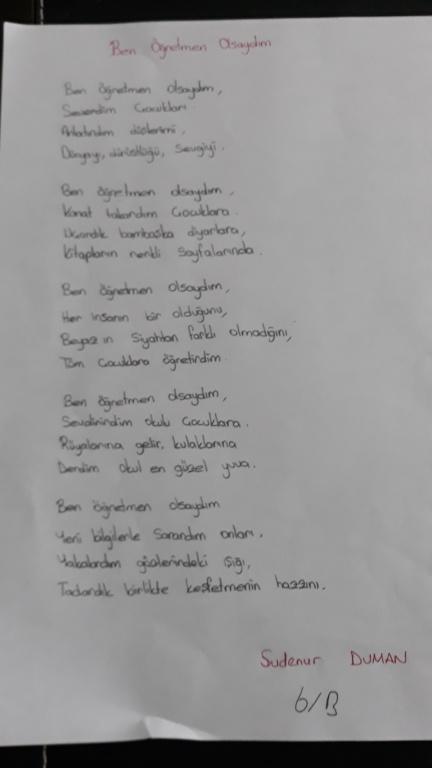 Ben Öğretmen Olsaydım
Ben öğretmen olsaydım,
Severdim Çocukları.
Anlatırdım düşlerimi,
Dünyayı, dürüstlüğü, Sevgiyi.
Ben öğretmen olsaydım,
Kanat takardım Çocuklara.
Uçardık bambaşka diyarlara,
Kitapların renkli Sayfalarında.
Ben öğretmen olsaydım,
Her insanın bir olduğunu,
Beyazın Siyahtan farklı olmadığını,
Tüm Çocuklara öğretirdim.
Ben öğretmen olsaydım,
Sevdirirdim okulu Çocuklara.
Rüyalarına gelir, kulaklarına
Derdim okul en güzel yuva.
Ben öğretmen olsaydım
Yeni bilgilerle Sarardım onları,
Yakalardım gözlerindeki ışığı,
Tadardık birlikte keşfetmenin hazzını.
Sudenur DUMAN
6/B